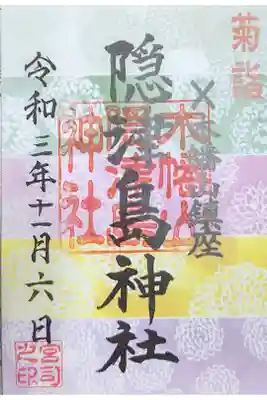 菊詣
木幡山鎮座
隠津島神社
令和三年十一月六日
木幡山
隠津島
神社
宮司
之印